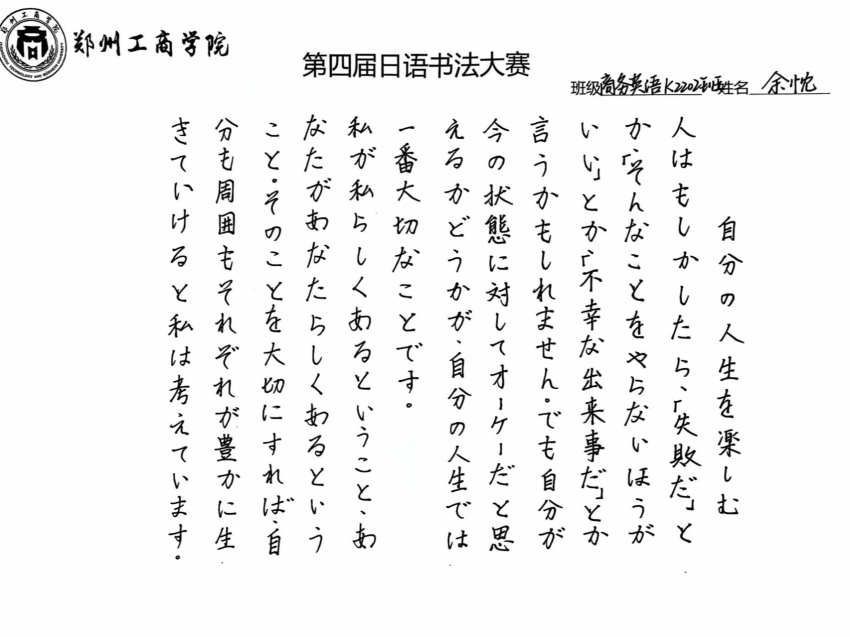 郑州工商学院
第四届日语书法大赛
班级商务英语K2202班姓名 余忱
自分の人生を楽しむ
人はもしかしたら、「失敗だ」と
か、「そんなことをやらないほうが
いい」とか、「不幸な出来事だ」とか
言うかもしれません。でも自分が
今の状態に対してオーケーだと思
えるかどうかが、自分の人生では
一番大切なことです。
私が私らしくあるということ、あ
なたがあなたらしくあるという
こと。そのことを大切にすれば、自
分も周囲もそれぞれが豊かに生
きていけると私は考えています。